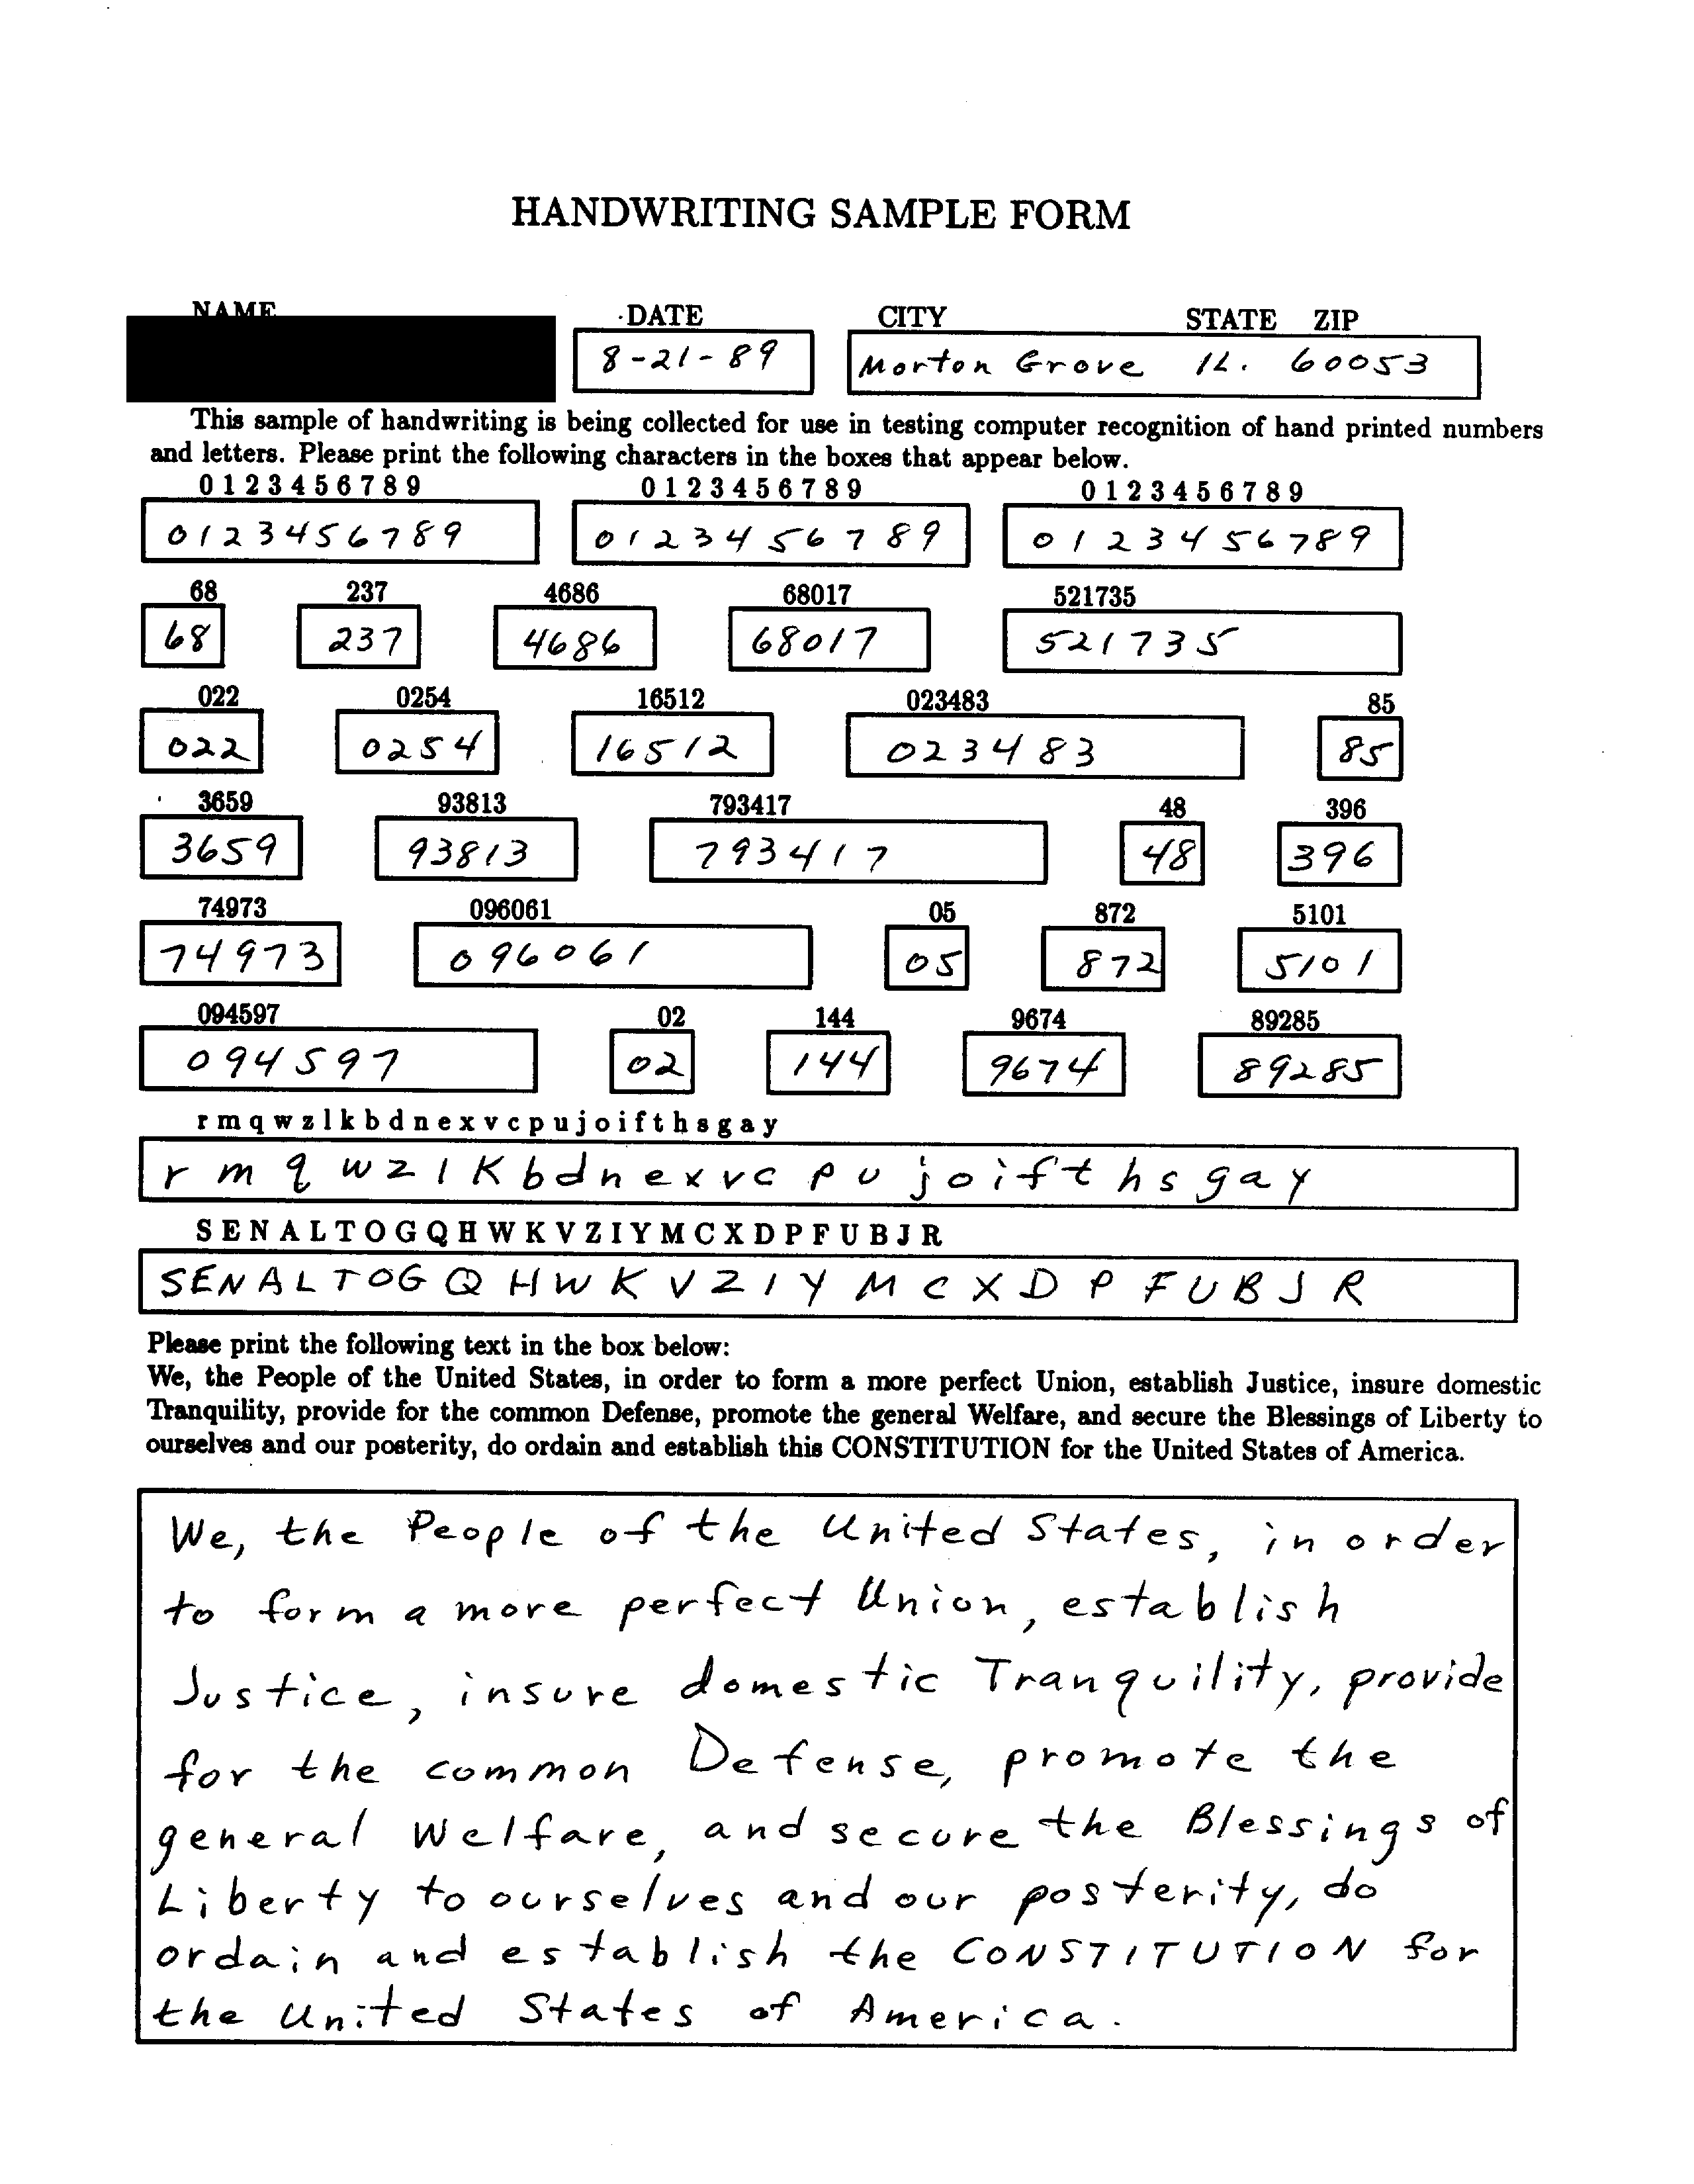 HANDWRITING SAMPLE FORM
NAME DATE CITY STATE ZIP
8-21-89 Morton Grove IL. 60053
This sample of handwriting is being collected for use in testing computer recognition of hand printed numbers
and letters. Please print the following characters in the boxes that appear below.
0 1 2 3 4 5 6 7 8 9 0 1 2 3 4 5 6 7 8 9 0 1 2 3 4 5 6 7 8 9
0123456789 0123456789 0123456789
68 237 4686 68017 521735
68 237 4686 68017 521735
022 0254 16512 023483 85
022 0254 16512 023483 85
3659 93813 793417 48 396
3659 93813 793417 48 396
74973 096061 05 872 5101
74973 096061 05 872 5101
094597 02 144 9674 89285
094597 02 144 9674 89285
r m q w z l k b d n e x v c p u j o i f t h s g a y
r m q w z l K b d n e x v c p u j o i f t h s g a y
S E N A L T O G Q H W K V Z I Y M C X D P F U B J R
S E N A L T O G Q H W K V Z I Y M C X D P F U B J R
Please print the following text in the box below:
We, the People of the United States, in order to form a more perfect Union, establish Justice, insure domestic
Tranquility, provide for the common Defense, promote the general Welfare, and secure the Blessings of Liberty to
ourselves and our posterity, do ordain and establish this CONSTITUTION for the United States of America.
We, the People of the United States, in order
to form a more perfect Union, establish
Justice, insure domestic Tranquility, provide
for the common Defense, promote the
general Welfare, and secure the Blessings of
Liberty to ourselves and our posterity, do
ordain and establish the CONSTITUTION for
the United States of America.